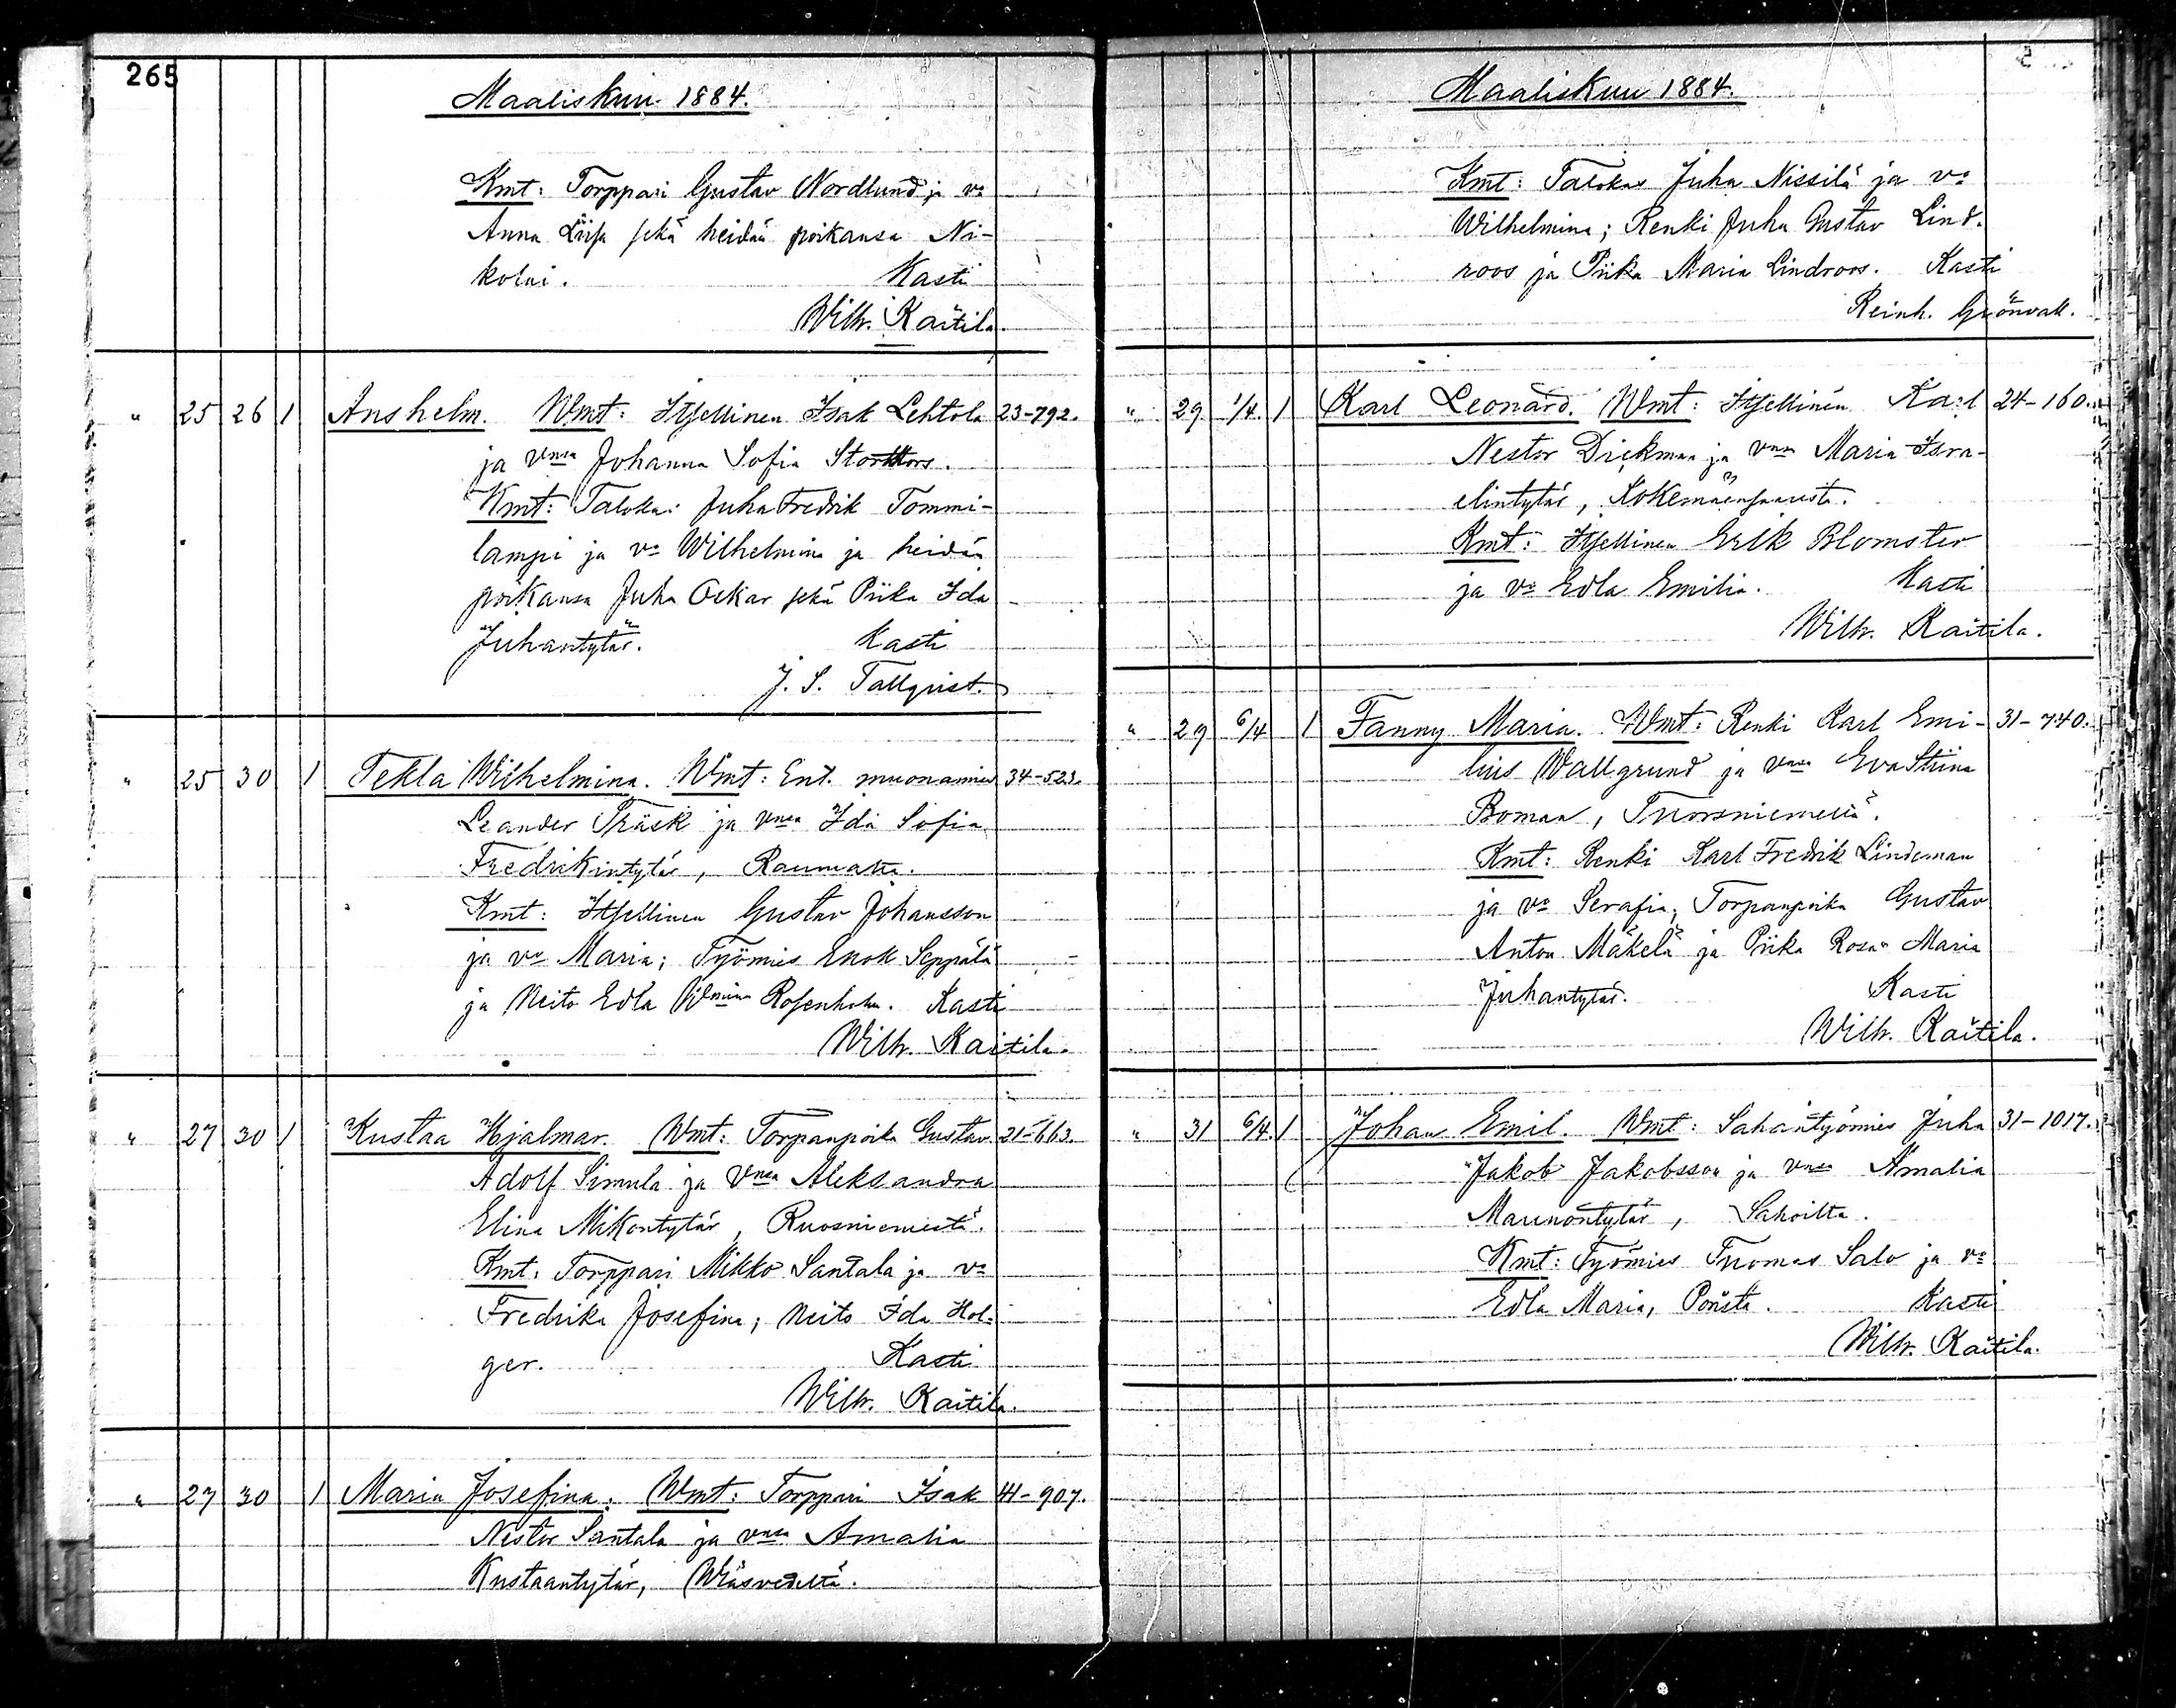 265
Maaliskuu 1884.
Kmt: Torppari Gustav Nordlund ja vo
Anna Liisa sekä heidän poikansa Ni-
kolai. Kasti
Wilh. Kaitila.
" 25 26 1 Anshelm. Wmt: Itsellinen Isak Lehtola 23-792.
ja vnsa Johanna Sofia
Kmt: Talokas Juha Fredrik Tommi-
lampi ja vo Wilhelmina ja heidän
poikansa Juha Oskar sekä Piika Ida
Juhantytär. Kasti
J. S. Tallqvist.
" 25 30 1 Tekla Wilhelmina. Wmt: Ent. muonamies 34-523.
Leander Träsk ja vnsa Ida Sofia
Fredrikintytär, Raumalta.
Kmt: Itsellinen Gustav Johansson
ja vo Maria; Työmies Enok Seppälä
ja Neito Edla Wmina Rosenholm. Kasti
Wilh. Kaitila.
" 27 30 1 Kustaa Hjalmar. Wmt: Torpanpoika Gustav 21-663.
Adolf Simula ja vnsa Aleksandra
Elina Mikontytär, Ruosniemestä.
Kmt: Torppari Mikko Santala ja vo
Fredrika Josefina; Neito Ida Hol-
ger. Kasti
Wilh. Kaitila.
" 27 30 1 Maria Josefina. Wmt: Torppari Isak 41-907.
Nestor Santala ja vnsa Amalia
Kustaantytär,
Maaliskuu 1884.
Kmt: Talokas Juha Nissilä ja vo
Wilhelmina; Renki Juha Gustav Lind-
roos ja Piika Maria Lindroos. Kasti
Reinh. Grönvall.
" 29 1/4. 1 Karl Leonard. Wmt: Itsellinen Karl 24-160.
Nestor Dickman ja vnsa Maria Isra-
elintytär, Kokemäensaaresta.
Kmt: Itsellinen Erik Blomster
ja vo Edla Emilia. Kasti
Wilh. Kaitila.
" 29 6/4 1 Fanny Maria. Wmt: Renki Karl Emi- 31-740.
lius Wallgrund ja vnsa Eva Stiina
Boman, Tuorsniemeltä.
Kmt: Renki Karl Fredrik Lindeman
ja vo Serafia; Torpanpoika Gustav
Anton Mäkelä ja Piika Rosa Maria
Juhantytär. Kasti
Wilh. Kaitila.
" 31 6/4. 1 Johan Emil. Wmt: Sahantyömies Juha 31-1017.
Jakob Jakobsson ja vnsa Amalia
Maunontytär, Sahoilta.
Kmt: Työmies Tuomas Salo ja vo
Edla Maria, Porista. Kasti
Wilh. Kaitila.